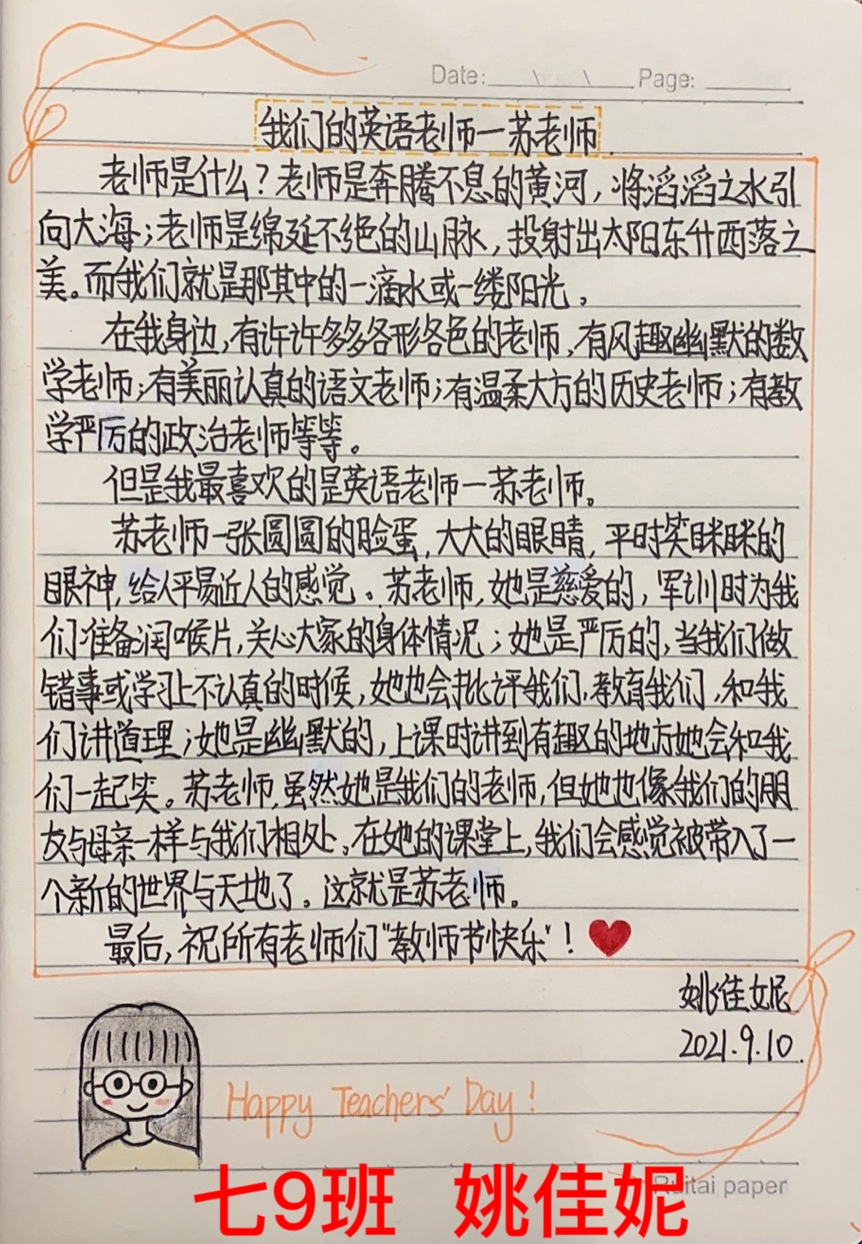 Date: \ \ Page:
我们的英语老师—苏老师
老师是什么？老师是奔腾不息的黄河，将滔滔之水引
向大海；老师是绵延不绝的山脉，投射出太阳东升西落之
美。而我们就是那其中的一滴水或一缕阳光。
在我身边，有许许多多各形各色的老师，有风趣幽默的数
学老师；有美丽认真的语文老师；有温柔大方的历史老师；有教
学严厉的政治老师等等。
但是我最喜欢的是英语老师—苏老师。
苏老师一张圆圆的脸蛋，大大的眼睛，平时笑眯眯的
眼神，给人平易近人的感觉。苏老师，她是慈爱的，军训时为我
们准备润喉片，关心大家的身体情况；她是严厉的，当我们做
错事或学习上不认真的时候，她也会批评我们，教育我们，和我
们讲道理；她是幽默的，上课时讲到有趣的地方她会和我
们一起笑。苏老师，虽然她是我们的老师，但她也像我们的朋
友与母亲一样与我们相处。在她的课堂上，我们会感觉被带入了一
个新的世界与天地了。这就是苏老师。
最后，祝所有老师们“教师节快乐”！
姚佳妮
2021.9.10
Happy Teachers' Day!
Ruitai paper
七9班 姚佳妮